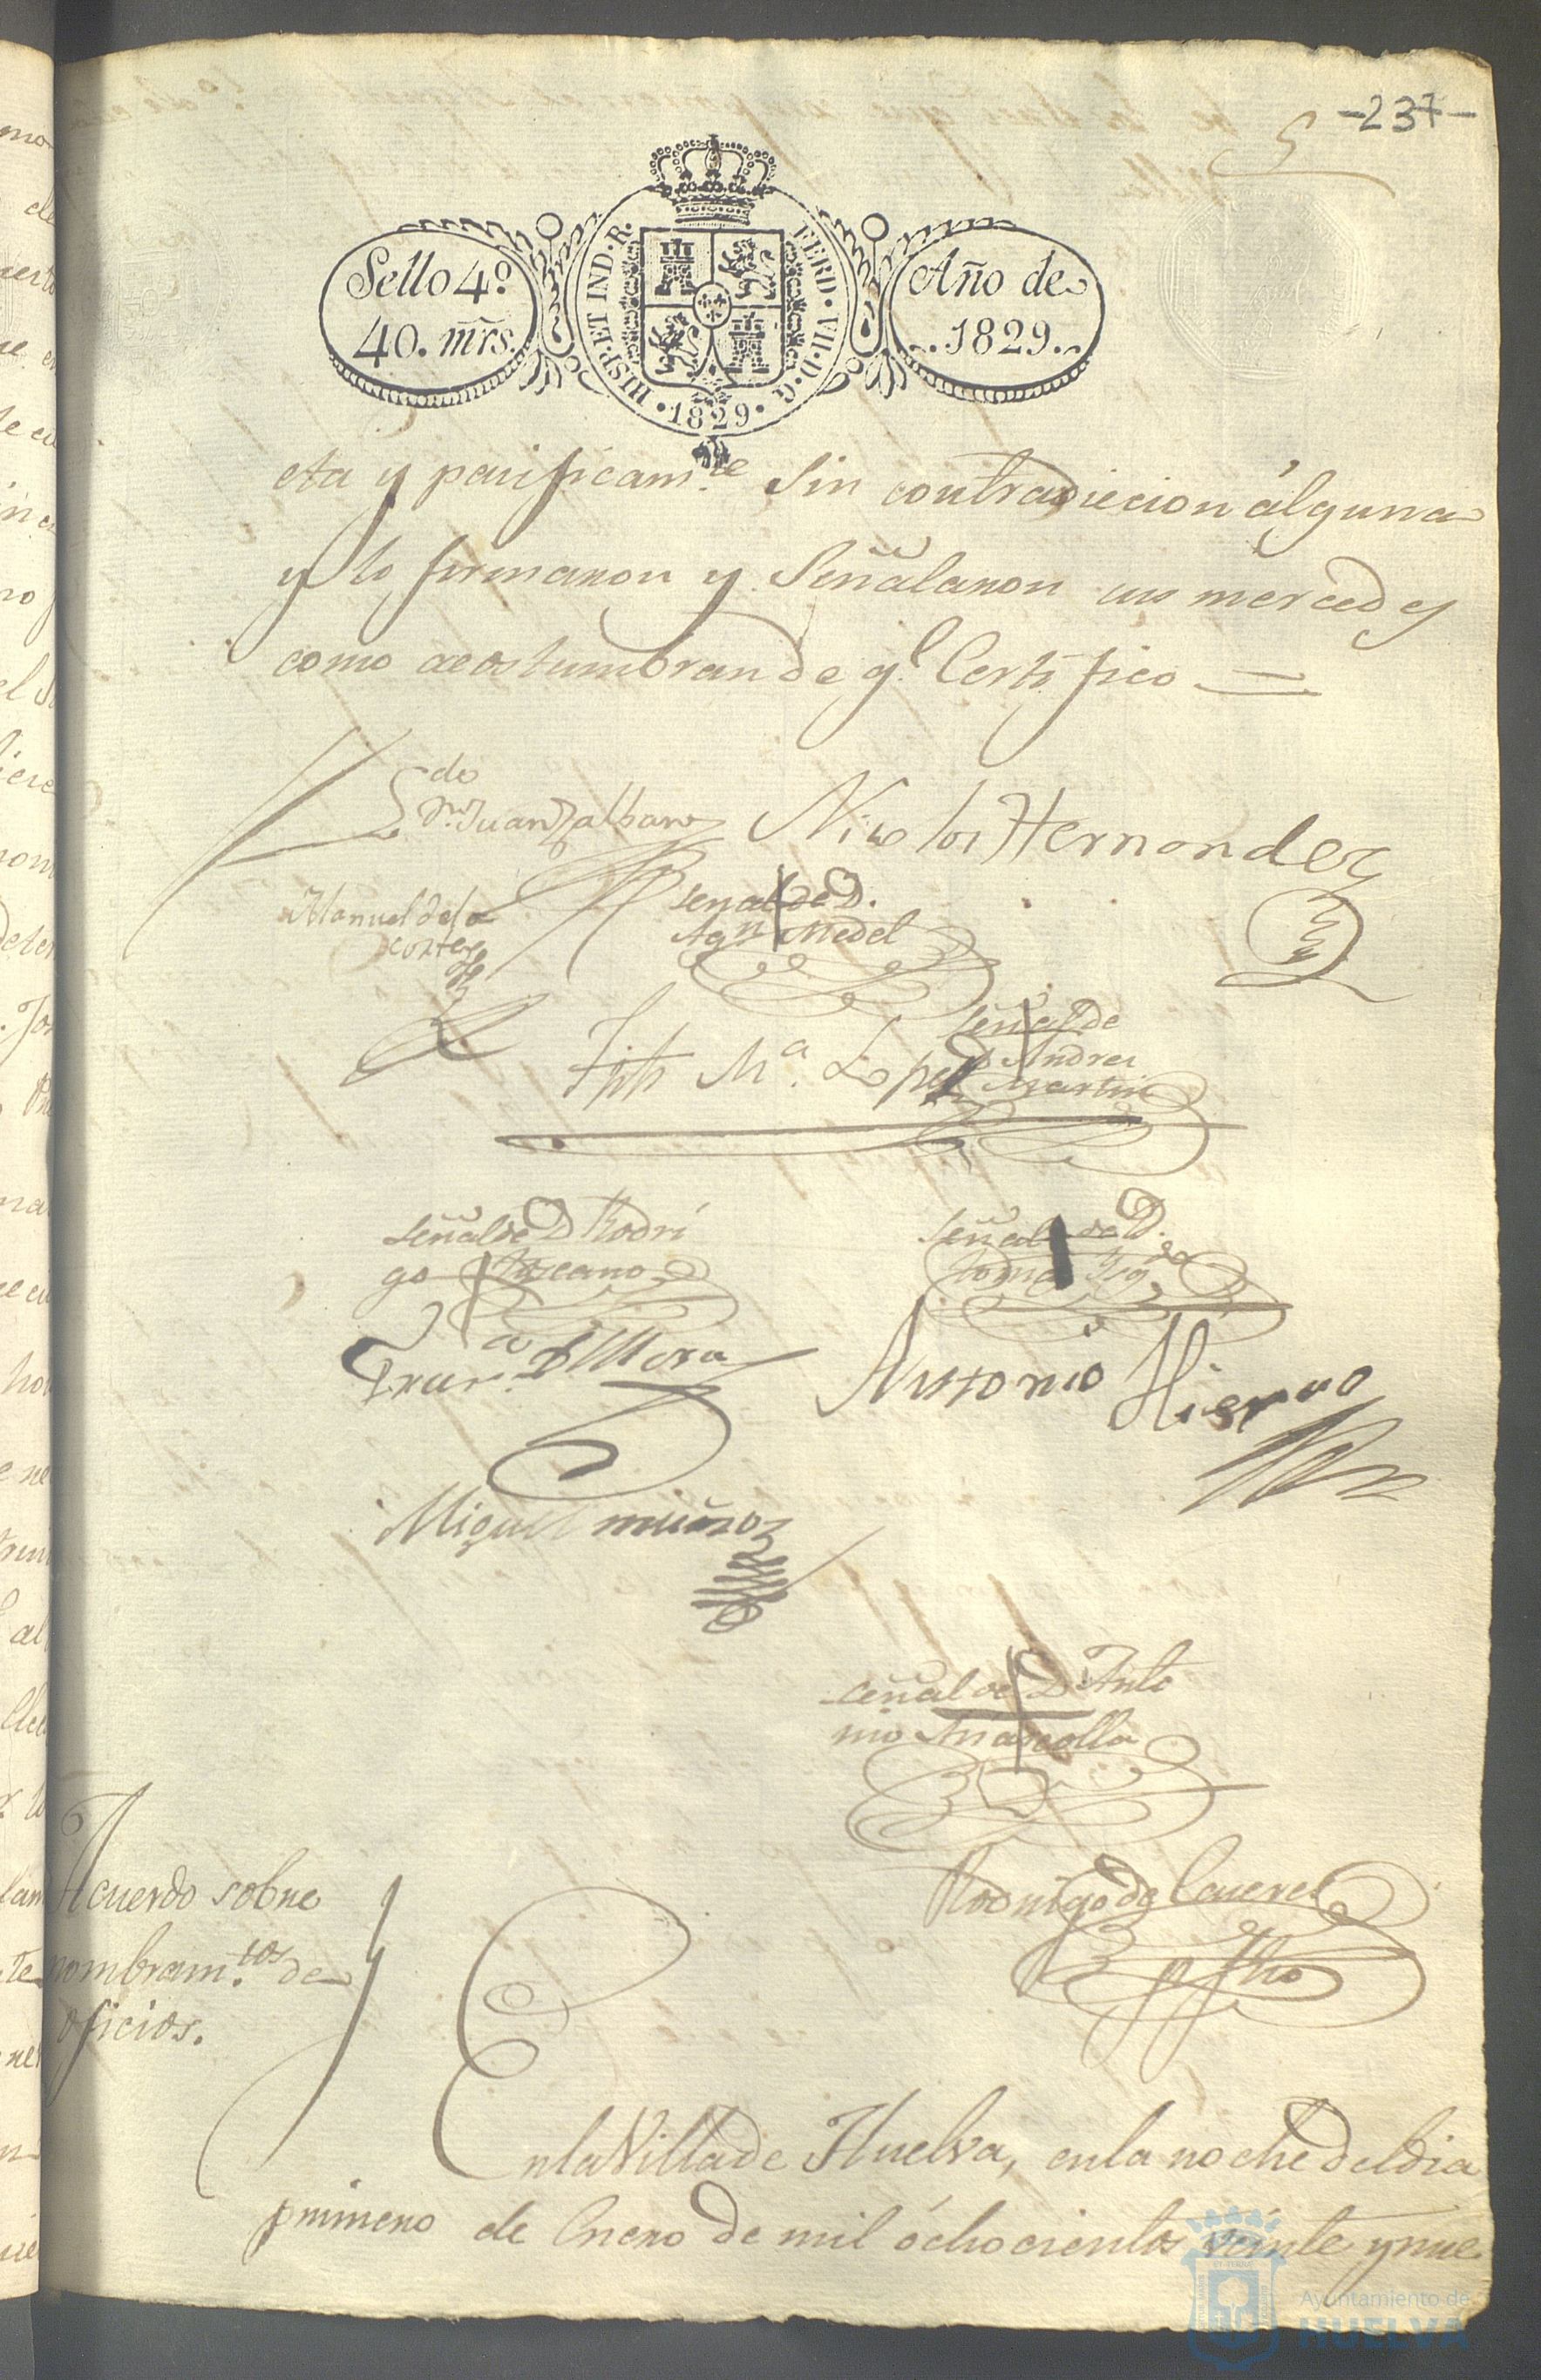 -237-
5
Sello 4º
40. mrs.
HISP. ET IND. R.
FERD. VII. D. G.
1829
Año de
1829.
eta y pacificam.te Sin contradiccion álguna
y lo firmaron y Señalaron sus mercedes
como acostumbran de q.l Certifico =
L.do
D.n Juan
Nicolas Hernandez
Manuel de la
cortes
señal de D.
Ag.n Medel
señal de
D. Andres
Martin
M.a Lopez
señal de D Rodri
go Toscano
señal de D.
Fran.co D Mora
Antonio Hierro
Miguel muñoz
señal de D Anto
nio
Rodrigo de
Acuerdo sobre
nombram.tos de
oficios.
En la Villa de Huelva, en la noche del dia
primero de Enero de mil óchocientos veinte y nue
Ayuntamiento de
HUELVA